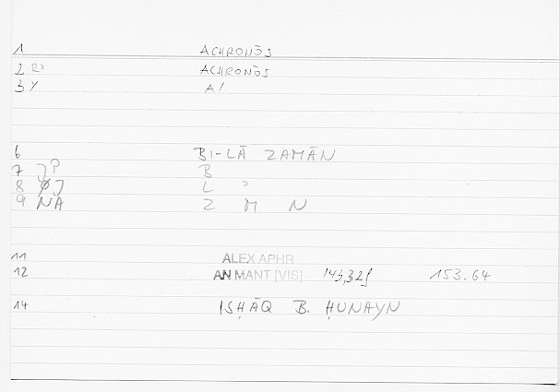 1 ACHRONŌS
2 ACHRONŌS
3 Y A1
6 BI-LĀ ZAMĀN
7 JP B
8 ØJ L
9 NA Z M N
11 ALEX APHR
12 AN MANT [VIS] 153.64
14 ISḤĀQ B. ḤUNAYN